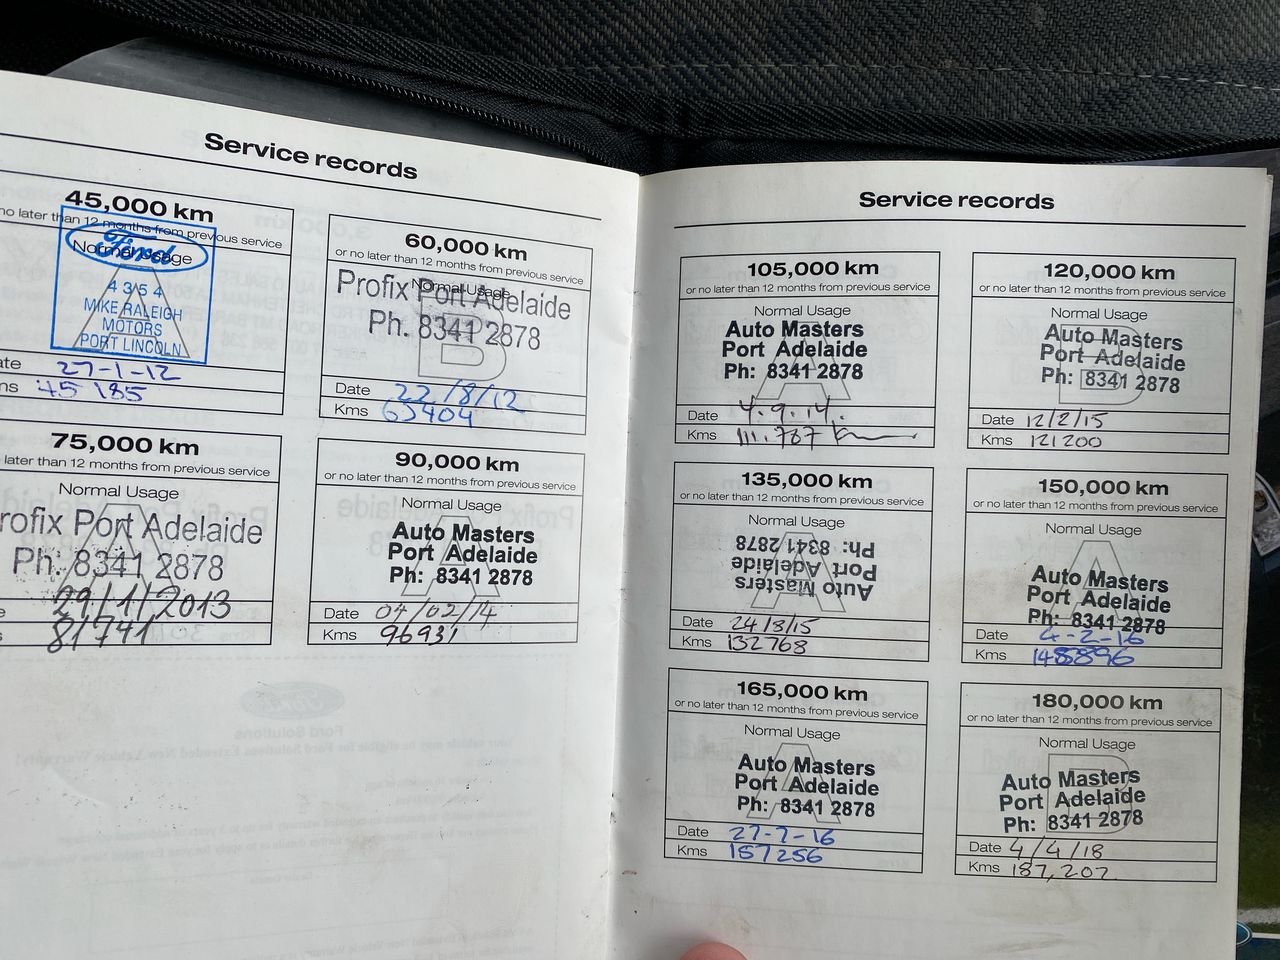 Service records
45,000 km
no later than 12 months from previous service
Normal Usage
Ford
4354
MIKE RALEIGH
MOTORS
PORT LINCOLN
ate 27-1-12
ms 45 185
60,000 km
or no later than 12 months from previous service
Normal Usage
Profix Port Adelaide
Ph. 8341 2878
B
Date 22/8/12
Kms
75,000 km
later than 12 months from previous service
Normal Usage
rofix Port Adelaide
Ph: 8341 2878
A
e 29/1/2013
s 81741
90,000 km
or no later than 12 months from previous service
Normal Usage
Auto Masters
Port Adelaide
Ph: 8341 2878
A
Date 04/02/14
Kms 96931
Service records
105,000 km
or no later than 12 months from previous service
Normal Usage
Auto Masters
Port Adelaide
Ph: 8341 2878
A
Date 4.9.14.
Kms 111.787 km
120,000 km
or no later than 12 months from previous service
Normal Usage
Auto Masters
Port Adelaide
Ph: 8341 2878
B
Date 12/2/15
Kms 121200
135,000 km
or no later than 12 months from previous service
Normal Usage
Auto Masters
Port Adelaide
Ph: 8341 2878
A
Date 24/8/15
Kms 132768
150,000 km
or no later than 12 months from previous service
Normal Usage
Auto Masters
Port Adelaide
Ph: 8341 2878
A
Date 4-2-16
Kms 148896
165,000 km
or no later than 12 months from previous service
Normal Usage
Auto Masters
Port Adelaide
Ph: 8341 2878
A
Date 27-7-16
Kms 157256
180,000 km
or no later than 12 months from previous service
Normal Usage
Auto Masters
Port Adelaide
Ph: 8341 2878
B
Date 4/4/18
Kms 187,207